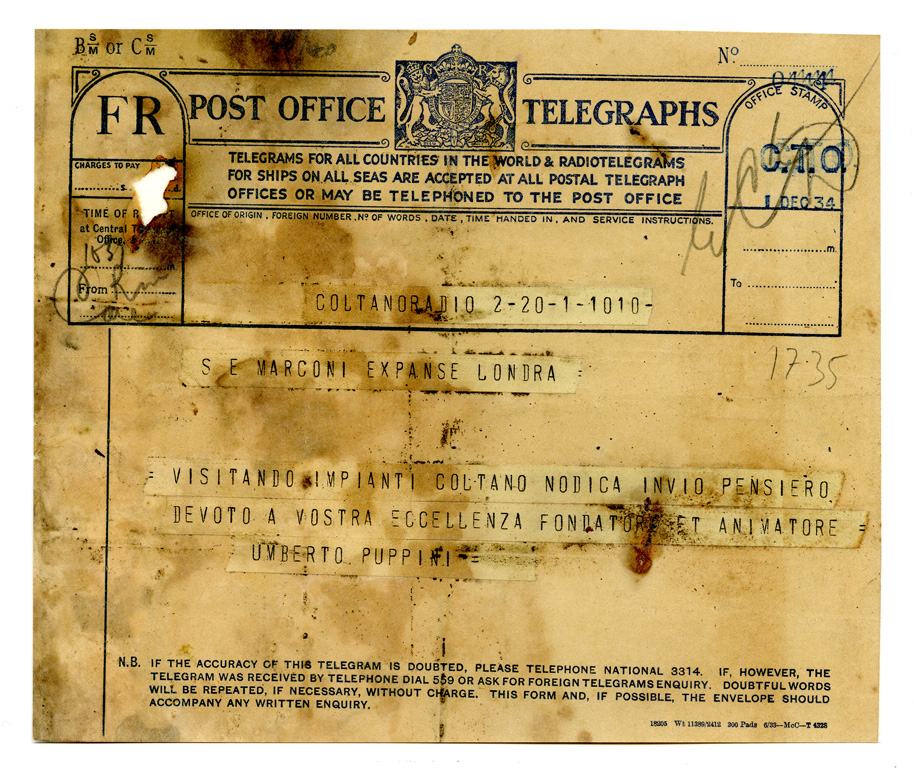 B S/M or C S/M
Nº
FR
POST OFFICE TELEGRAPHS
G R
OFFICE STAMP
CHARGES TO PAY
s. d.
TELEGRAMS FOR ALL COUNTRIES IN THE WORLD & RADIOTELEGRAMS
FOR SHIPS ON ALL SEAS ARE ACCEPTED AT ALL POSTAL TELEGRAPH
OFFICES OR MAY BE TELEPHONED TO THE POST OFFICE
C.T.O.
1 DEC 34
TIME OF
at Central
Office.
OFFICE OF ORIGIN, FOREIGN NUMBER, Nº OF WORDS, DATE, TIME HANDED IN, AND SERVICE INSTRUCTIONS.
m.
m.
From
To
COLTANORADIO 2-20-1-1010-
17.35
S E MARCONI EXPANSE LONDRA =
= VISITANDO IMPIANTI COLTANO NODICA INVIO PENSIERO
DEVOTO A VOSTRA ECCELLENZA FONDATORE ET ANIMATORE =
UMBERTO PUPPINI =
N.B. IF THE ACCURACY OF THIS TELEGRAM IS DOUBTED, PLEASE TELEPHONE NATIONAL 3314. IF, HOWEVER, THE
TELEGRAM WAS RECEIVED BY TELEPHONE DIAL 559 OR ASK FOR FOREIGN TELEGRAMS ENQUIRY. DOUBTFUL WORDS
WILL BE REPEATED, IF NECESSARY, WITHOUT CHARGE. THIS FORM AND, IF POSSIBLE, THE ENVELOPE SHOULD
ACCOMPANY ANY WRITTEN ENQUIRY.
18205 Wt 11389/2412 200 Pads 6/33—McC—T 4328